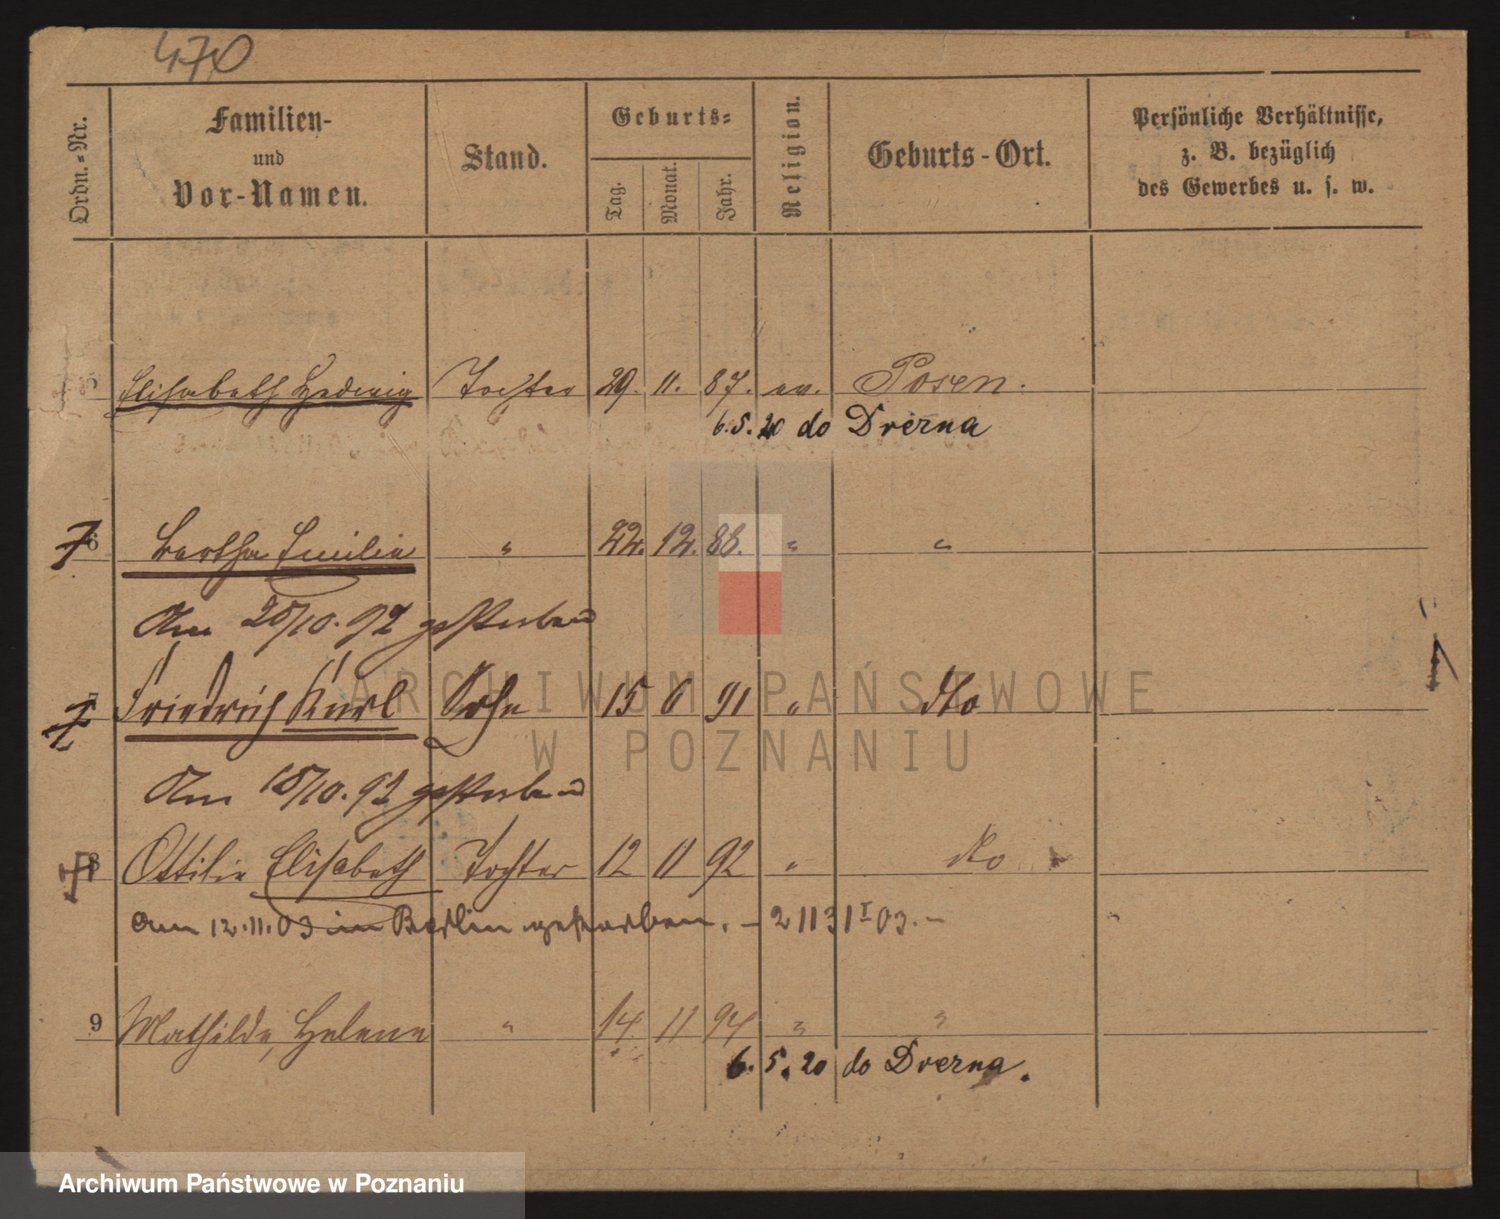 470
Ordn.-Nr.
Familien-
und
Vor-Namen.
Stand.
Geburts-
Tag.
Monat.
Jahr.
Religion.
Geburts-Ort.
Persönliche Verhältnisse,
z. B. bezüglich
des Gewerbes u. s. w.
5 Elisabeth Hedwig Tochter 29. 11. 87. ev. Posen.
6.5.20 do Drezna
6 Bertha Emilie " 22. 12. 88. " "
Am 25/10.92 gestorben
7 Friedrich Kurl Sohn 15 6 91 " dto
Am 18/10.92 gestorben
8 Ottilie Elisabeth Tochter 12 11 92 " dto
am 12.11.03 in Berlin gestorben. – 21131 I 03. –
9 Mathilde, Helene " 14 11 94 " "
6.5.20 do Drezna.
ARCHIWUM PAŃSTWOWE
W POZNANIU
Archiwum Państwowe w Poznaniu